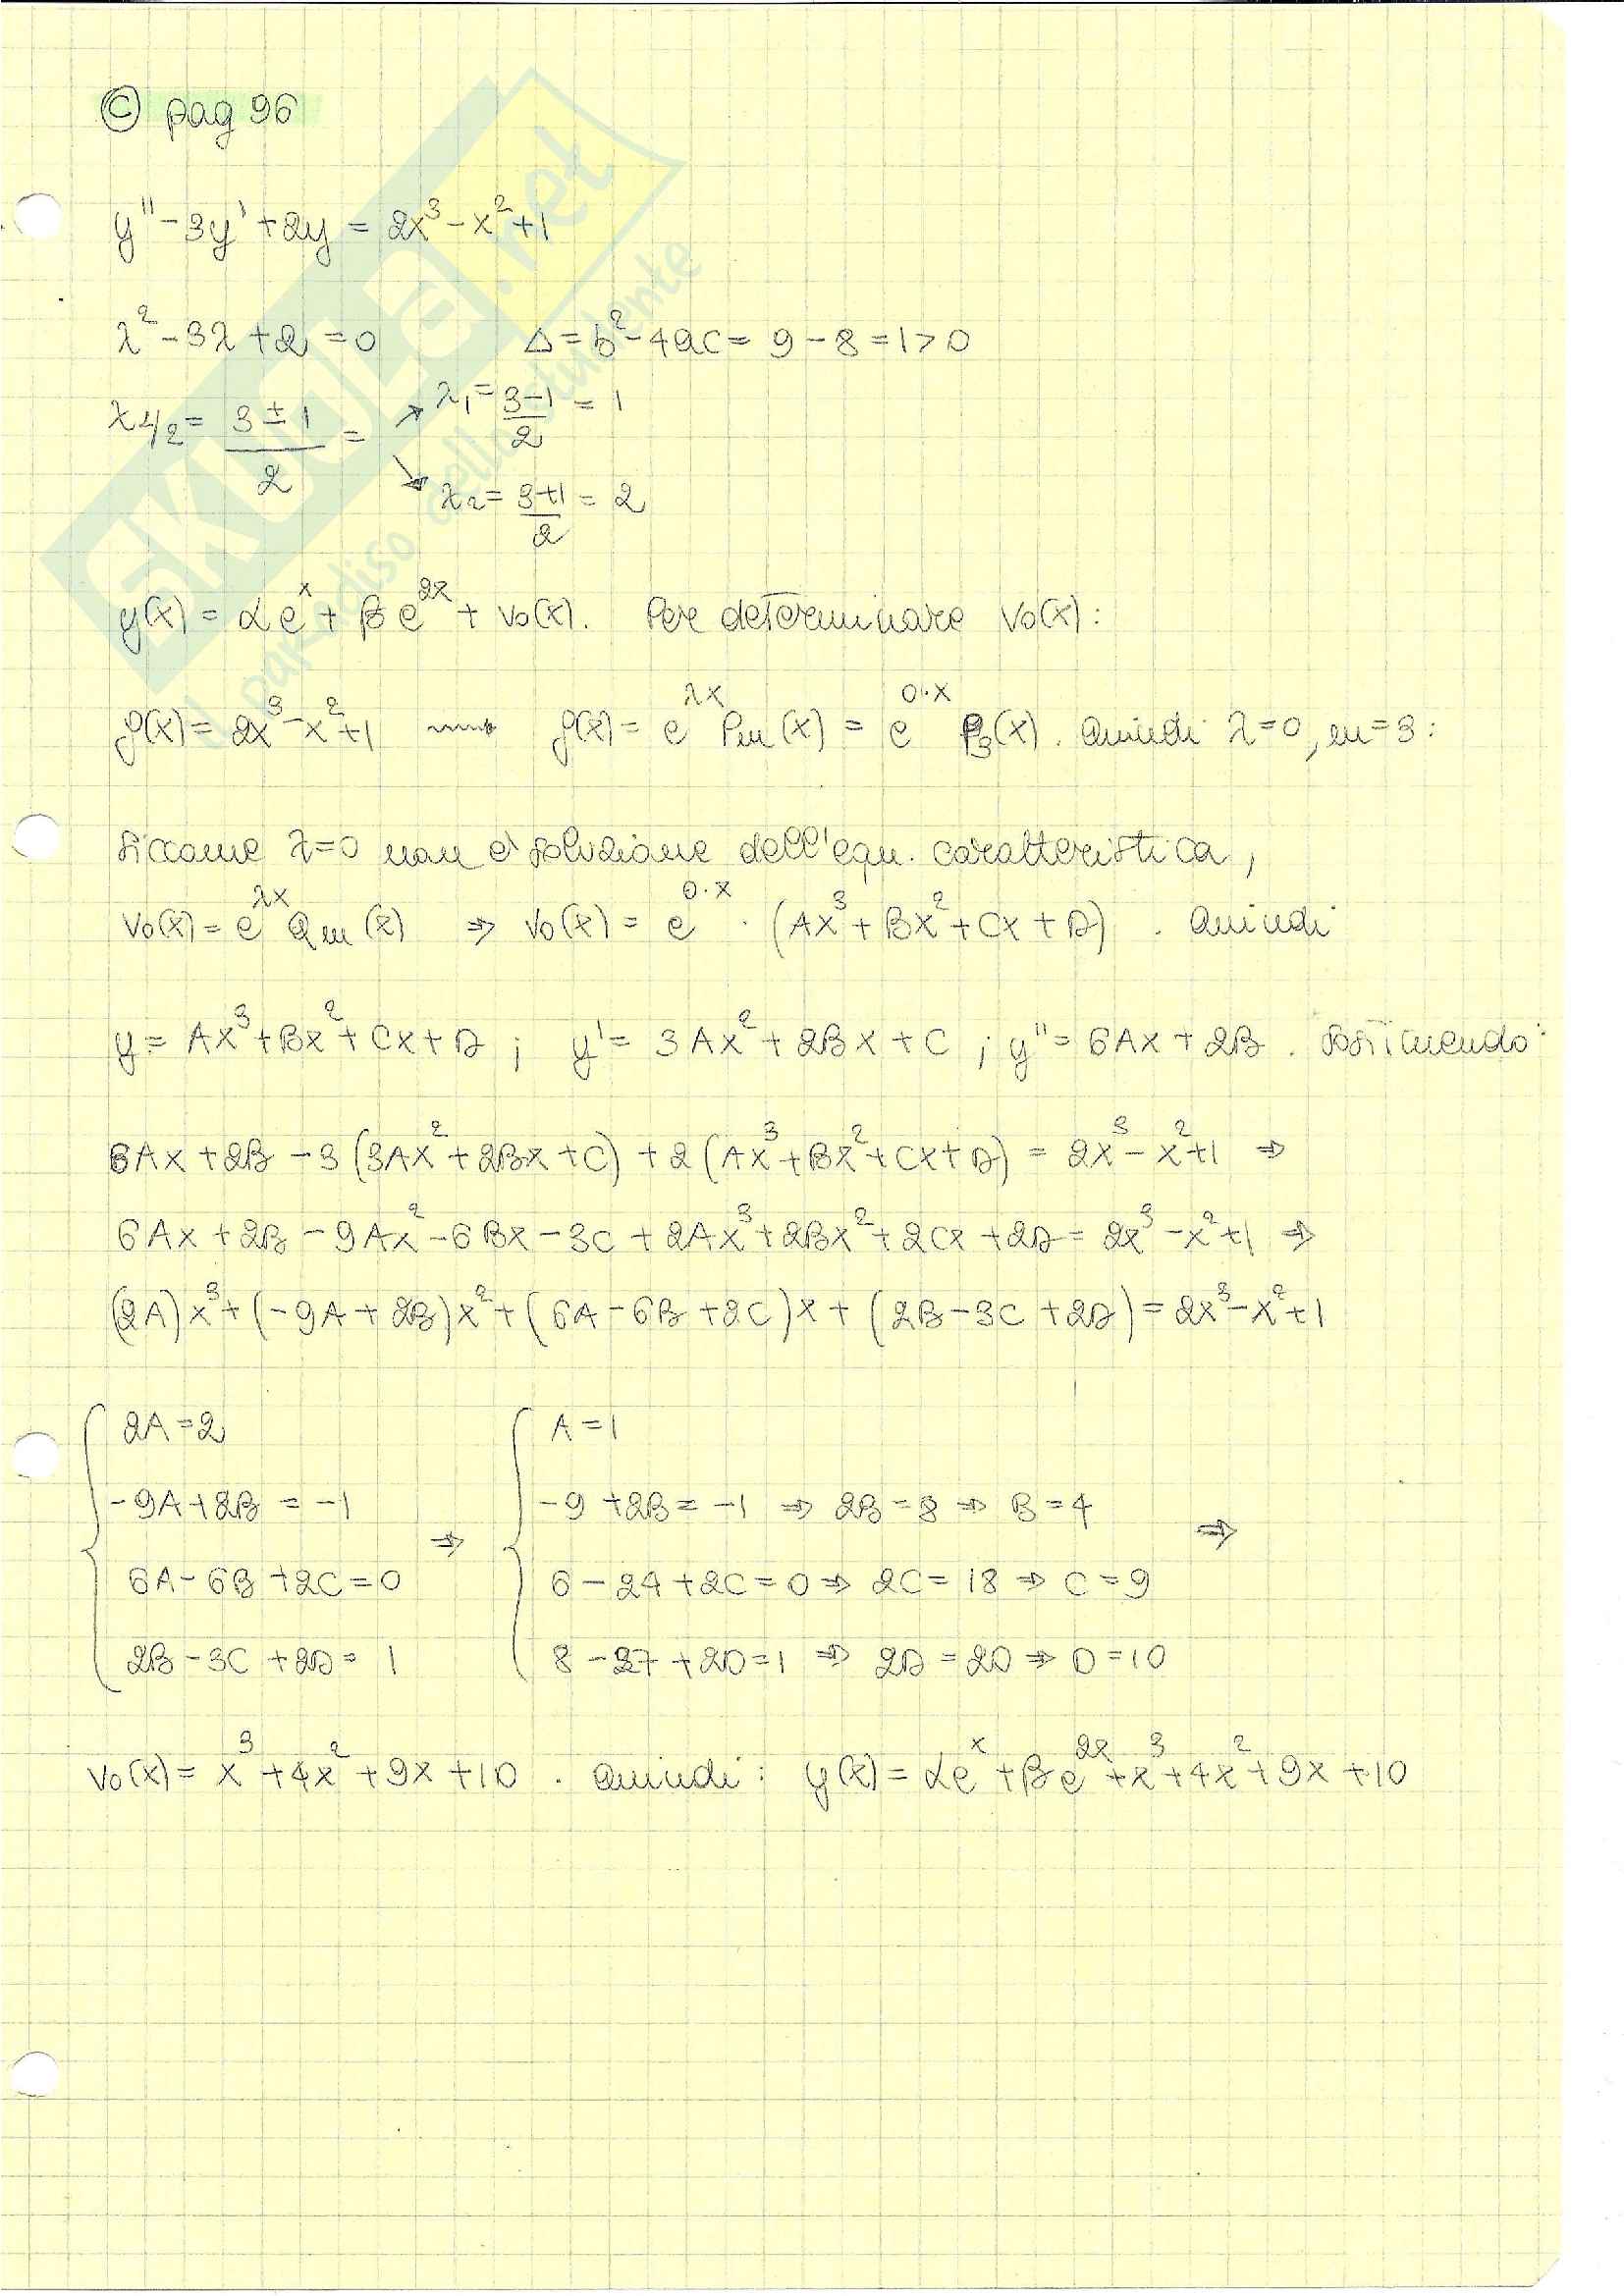 © pag 96
y'' - 3y' + 2y = 2x³ - x² + 1
λ² - 3λ + 2 = 0 Δ = b² - 4ac = 9 - 8 = 1 > 0
λ1/2 = (3 ± 1)/2 = ↗ λ₁ = (3-1)/2 = 1
↘ λ₂ = (3+1)/2 = 2
y(x) = αeˣ + βe²ˣ + v₀(x). Per determinare v₀(x):
f(x) = 2x³ - x² + 1 ⟿ f(x) = e^(λx) Pm(x) = e^(0·x) P₃(x). Quindi λ=0, m=3:
Siccome λ=0 non è soluzione dell'equ. caratteristica,
v₀(x) = e^(λx) Qm(x) ⇒ v₀(x) = e^(0·x) · (Ax³ + Bx² + Cx + D). Quindi
y = Ax³ + Bx² + Cx + D ; y' = 3Ax² + 2Bx + C ; y'' = 6Ax + 2B. Sostituendo:
6Ax + 2B - 3(3Ax² + 2Bx + C) + 2(Ax³ + Bx² + Cx + D) = 2x³ - x² + 1 ⇒
6Ax + 2B - 9Ax² - 6Bx - 3C + 2Ax³ + 2Bx² + 2Cx + 2D = 2x³ - x² + 1 ⇒
(2A)x³ + (-9A + 2B)x² + (6A - 6B + 2C)x + (2B - 3C + 2D) = 2x³ - x² + 1
2A = 2 A = 1
-9A + 2B = -1 ⇒ -9 + 2B = -1 ⇒ 2B = 8 ⇒ B = 4 ⇒
6A - 6B + 2C = 0 6 - 24 + 2C = 0 ⇒ 2C = 18 ⇒ C = 9
2B - 3C + 2D = 1 8 - 27 + 2D = 1 ⇒ 2D = 20 ⇒ D = 10
v₀(x) = x³ + 4x² + 9x + 10 . Quindi : y(x) = αeˣ + βe²ˣ + x³ + 4x² + 9x + 10
SKUOLA.net
il paradiso dello studente